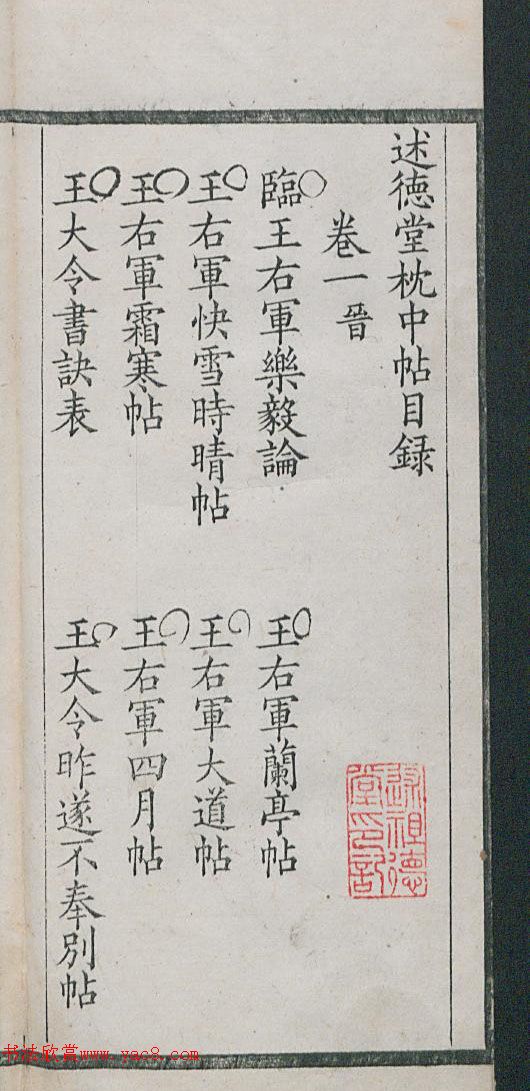 述德堂枕中帖目録
卷一晉
臨王右軍樂毅論
王右軍蘭亭帖
王右軍快雪時晴帖
王右軍大道帖
王右軍霜寒帖
王右軍四月帖
王大令書訣表
王大令昨遂不奉別帖
述祖德堂印記
书法欣赏www.yac8.com